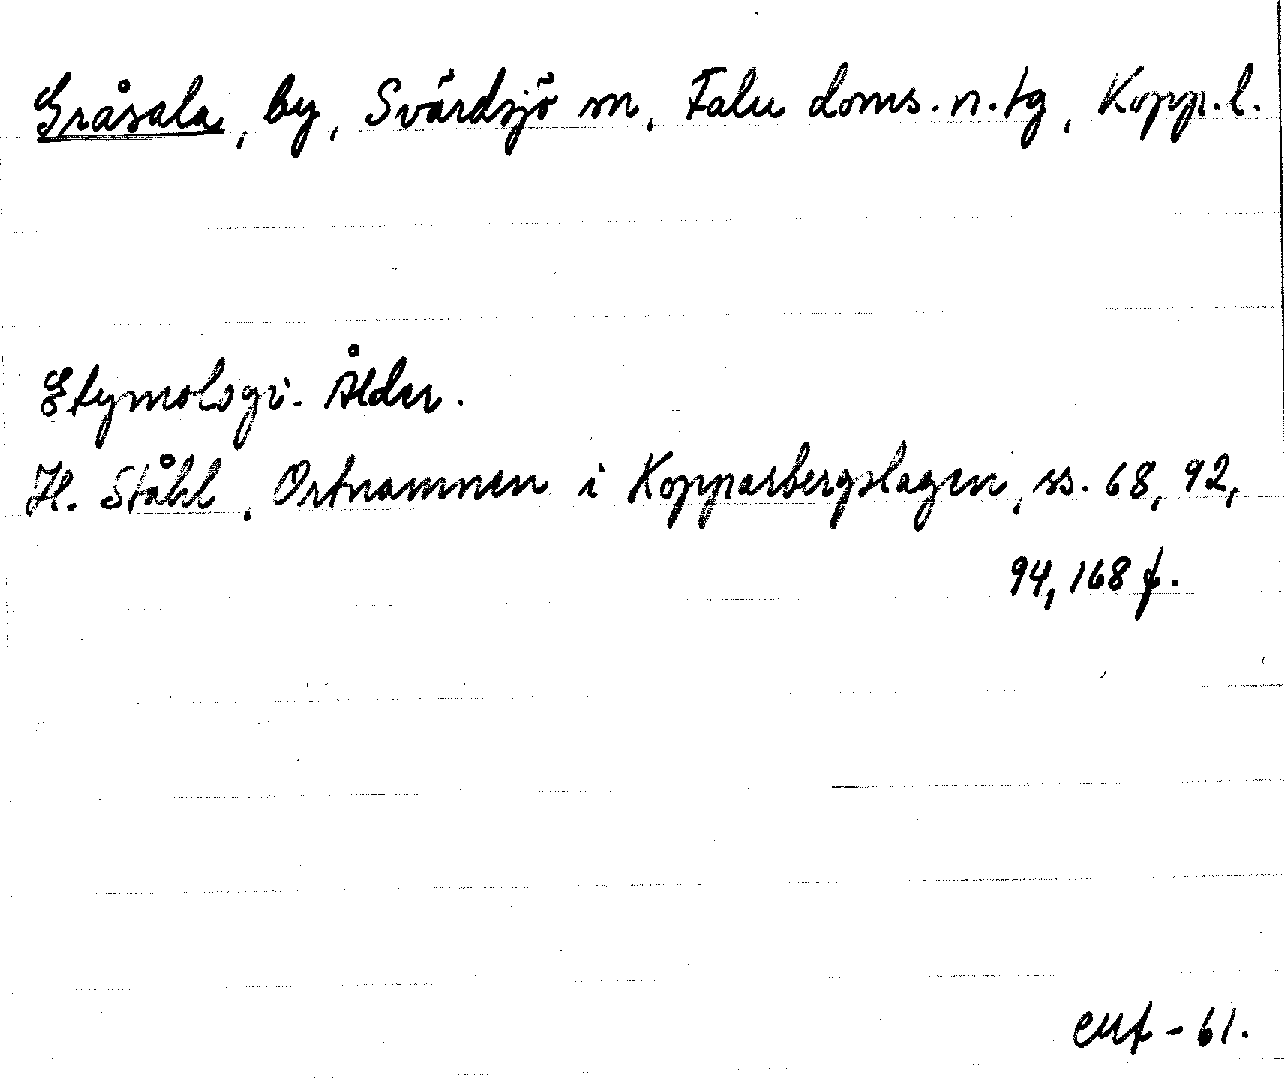 Gråsala, by, Svärdsjö sn, Falu doms.n.tg, Kopp.l.
Etymologi. Ålder.
H. Ståhl, Ortnamnen i Kopparbergslagen, ss. 68, 92,
94, 168 f.
-61.